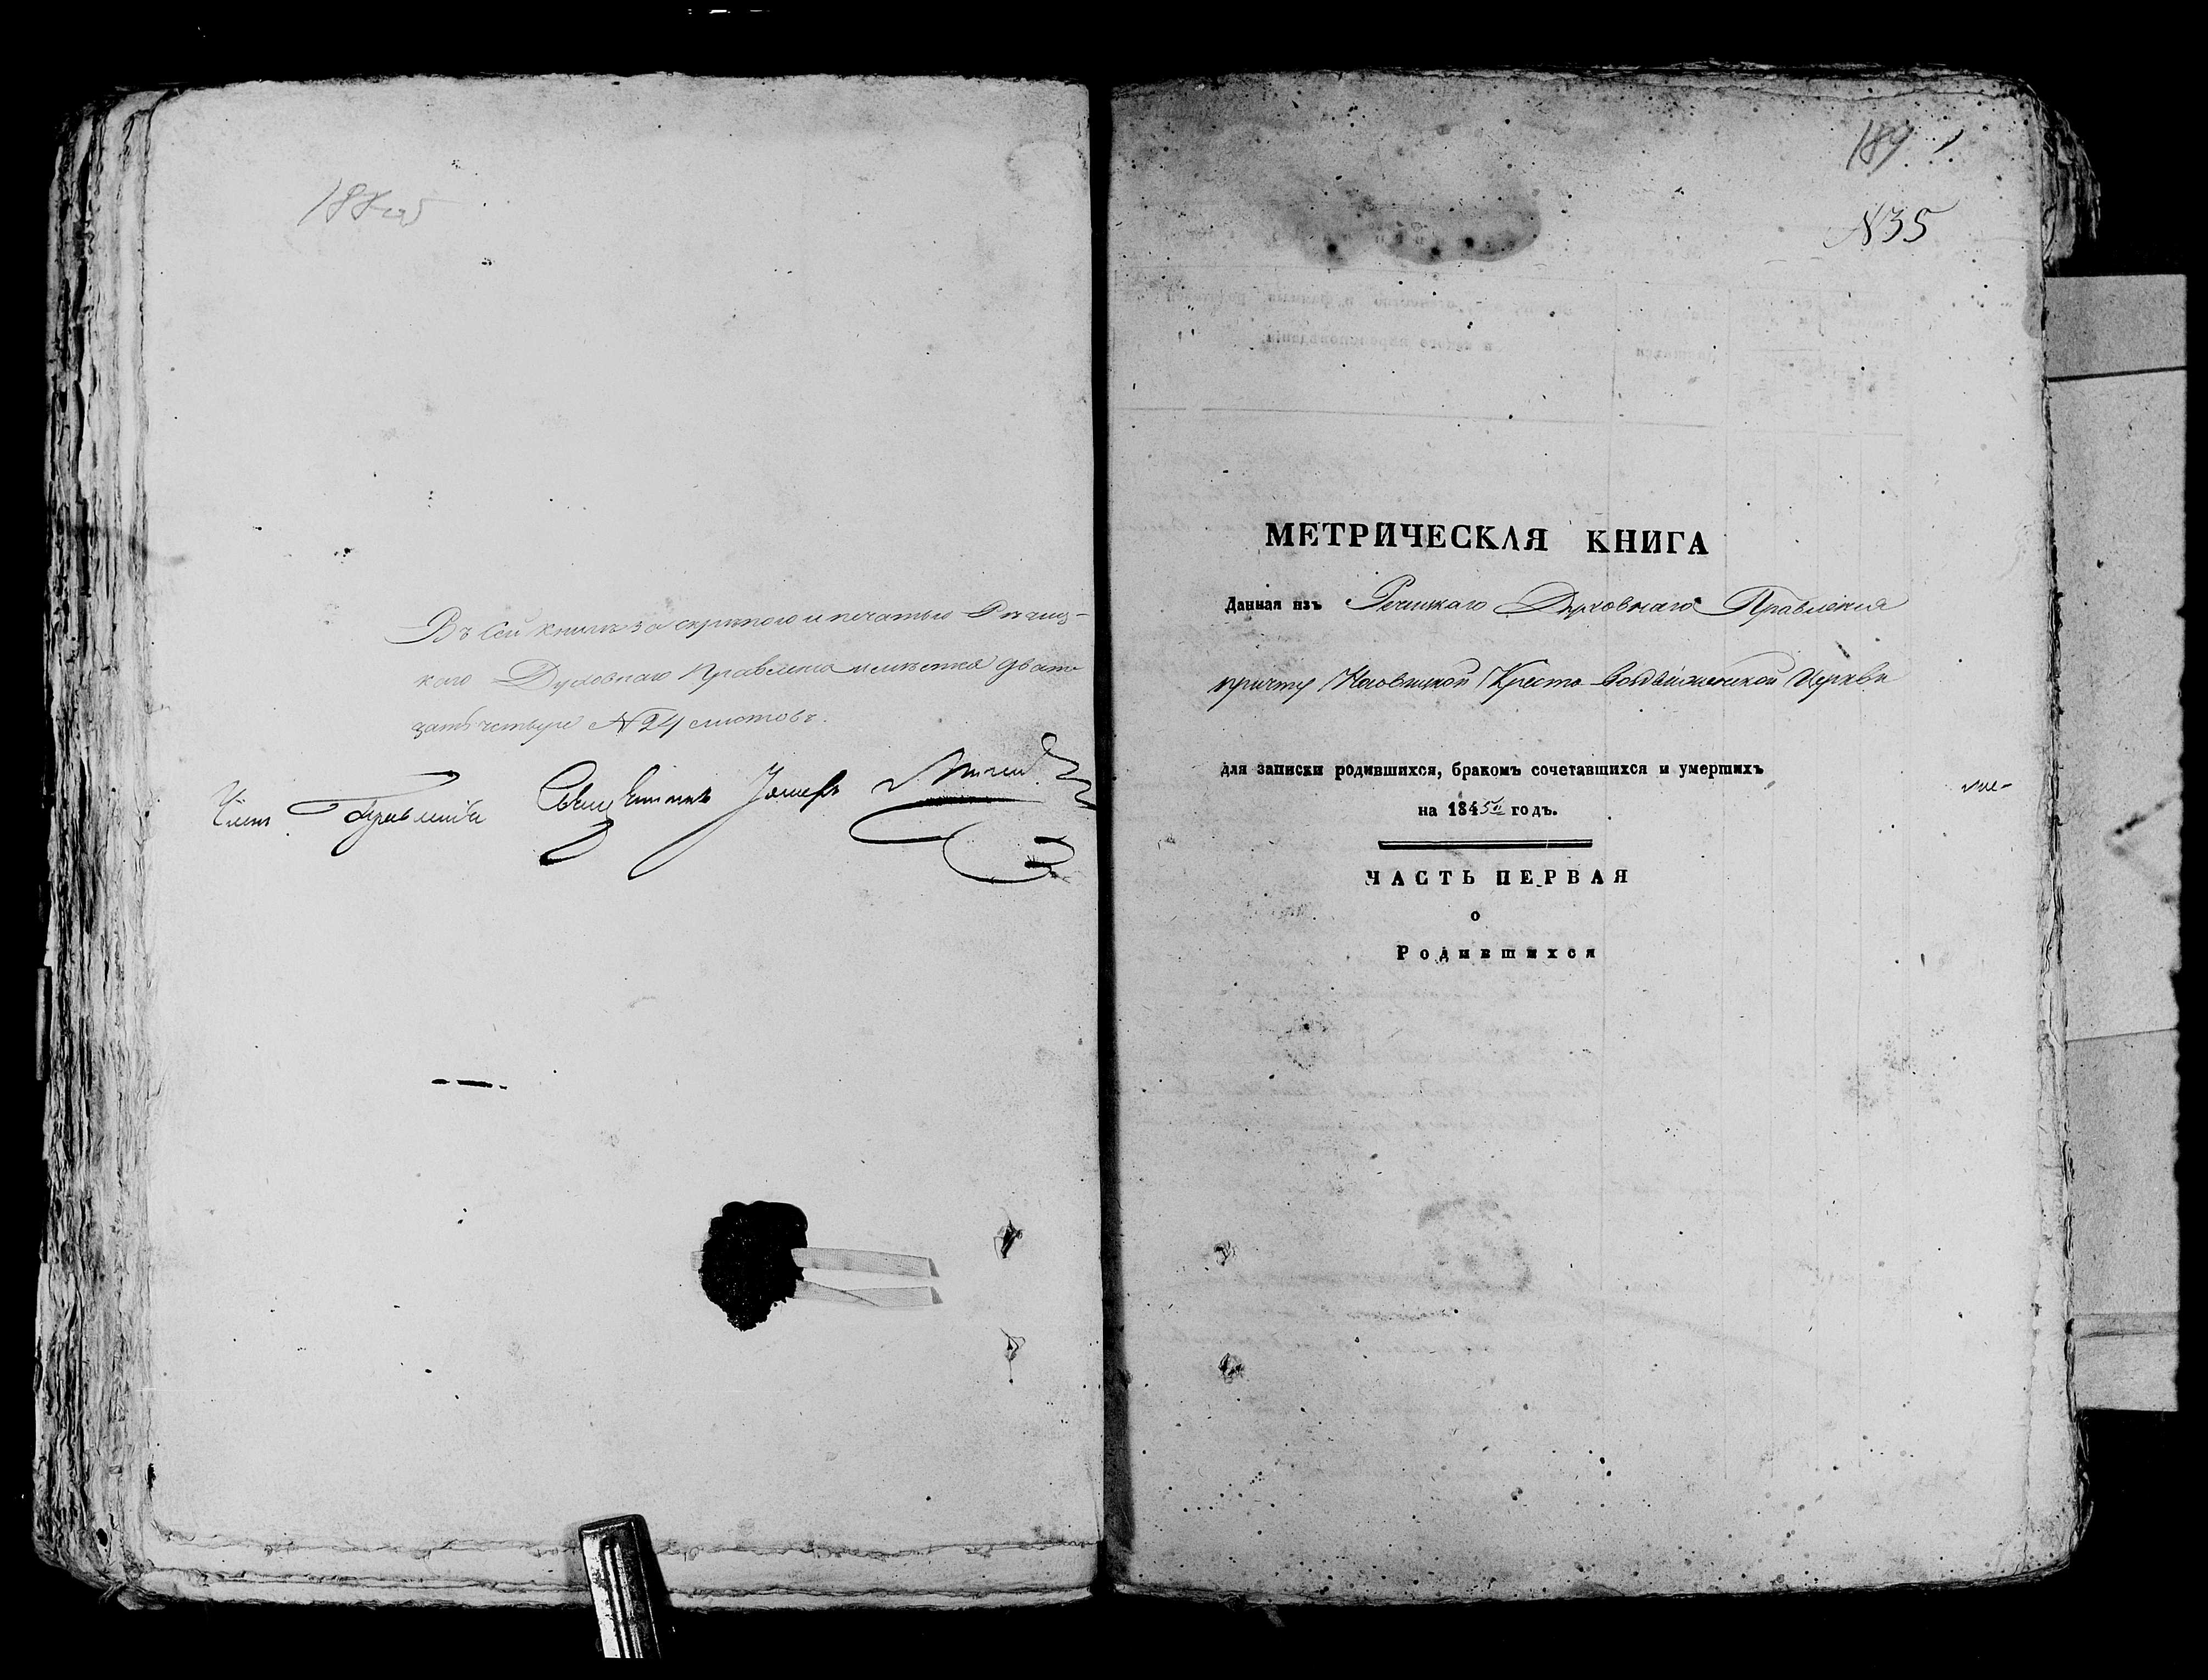 188 об
Въ сей книгѣ за скрѣпою и печатью Рѣчиц-
каго Духовнаго Правленія имѣется двад-
цать четыре №24 листовъ.
Членъ Правленія Священникъ Іосифъ
189
№35
МЕТРИЧЕСКАЯ КНИГА
Данная изъ Речицкаго Духовнаго Правленія
причту Крестовоздвиженской Церкви
для записки родившихся, бракомъ сочетавшихся и умершихъ
на 1845й годъ.
ЧАСТЬ ПЕРВАЯ
о
Родившихся